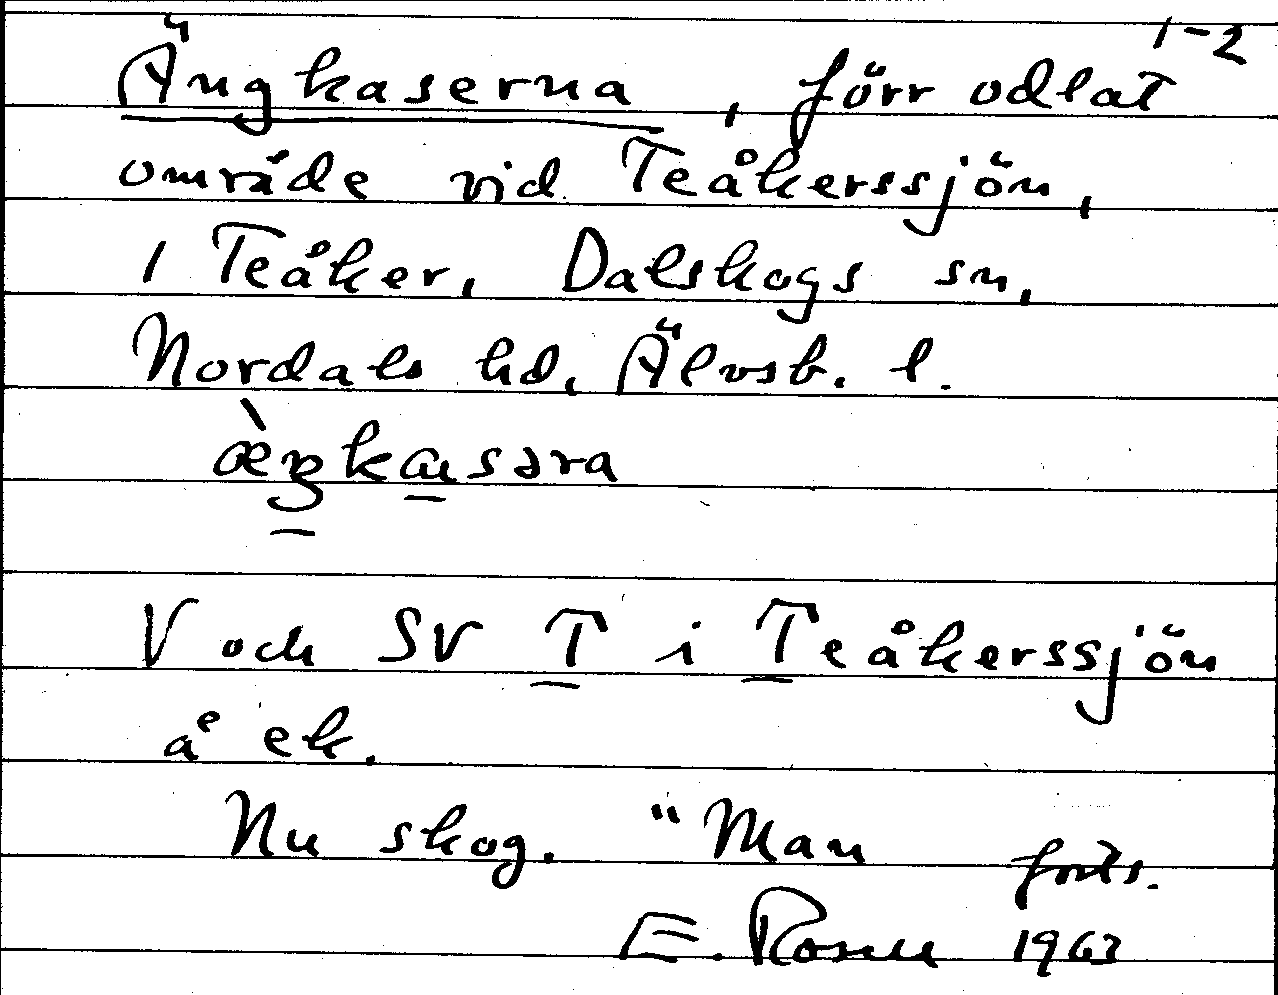 1-2
Ängkaserna, förr odlat
område vid Teåkerssjön,
1 Teåker, Dalskogs sn,
Nordals hd, Älvsb. l.
V och SV T i Teåkerssjön
å ek.
Nu skog. "Man forts.
E. Rosell 1963